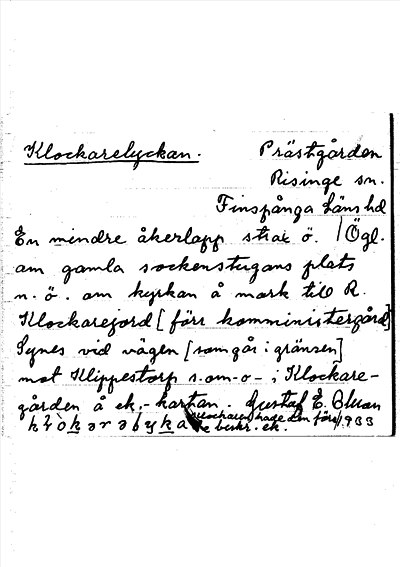 Klockarelyckan. Prästgården
Risinge sn.
Finspånga läns hd
En mindre åkerlapp strax ö. / Ögl.
om gamla sockenstugans plats
n. ö. om kyrkan å mark till R.
Klockarejord [förr komministergård]
Synes vid vägen [som går i gränsen]
mot Klippestorp s. om - o - i Klockare-
gården å ek. - kartan. Gustaf E. Elman
klockaren hade den förr 1933
se beskr. ek.